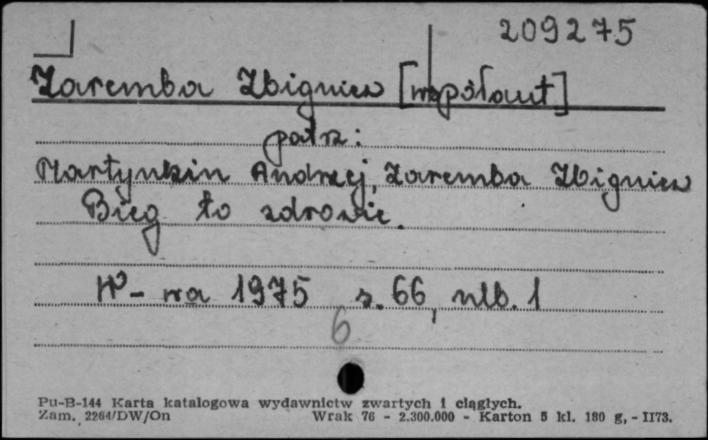 209275
Zaremba Zbigniew [współaut]
patrz:
Martynkin Andrzej, Zaremba Zbigniew
Bieg to zdrowie.
W-wa 1975 s. 66, nlb. 1
6
Pu-B-144 Karta katalogowa wydawnictw zwartych i ciągłych.
Zam. 2264/DW/On Wrak 76 - 2.300.000 - Karton 5 kl. 180 g, - II73.